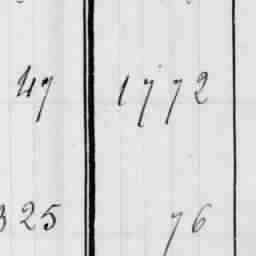 47 1772
325 76